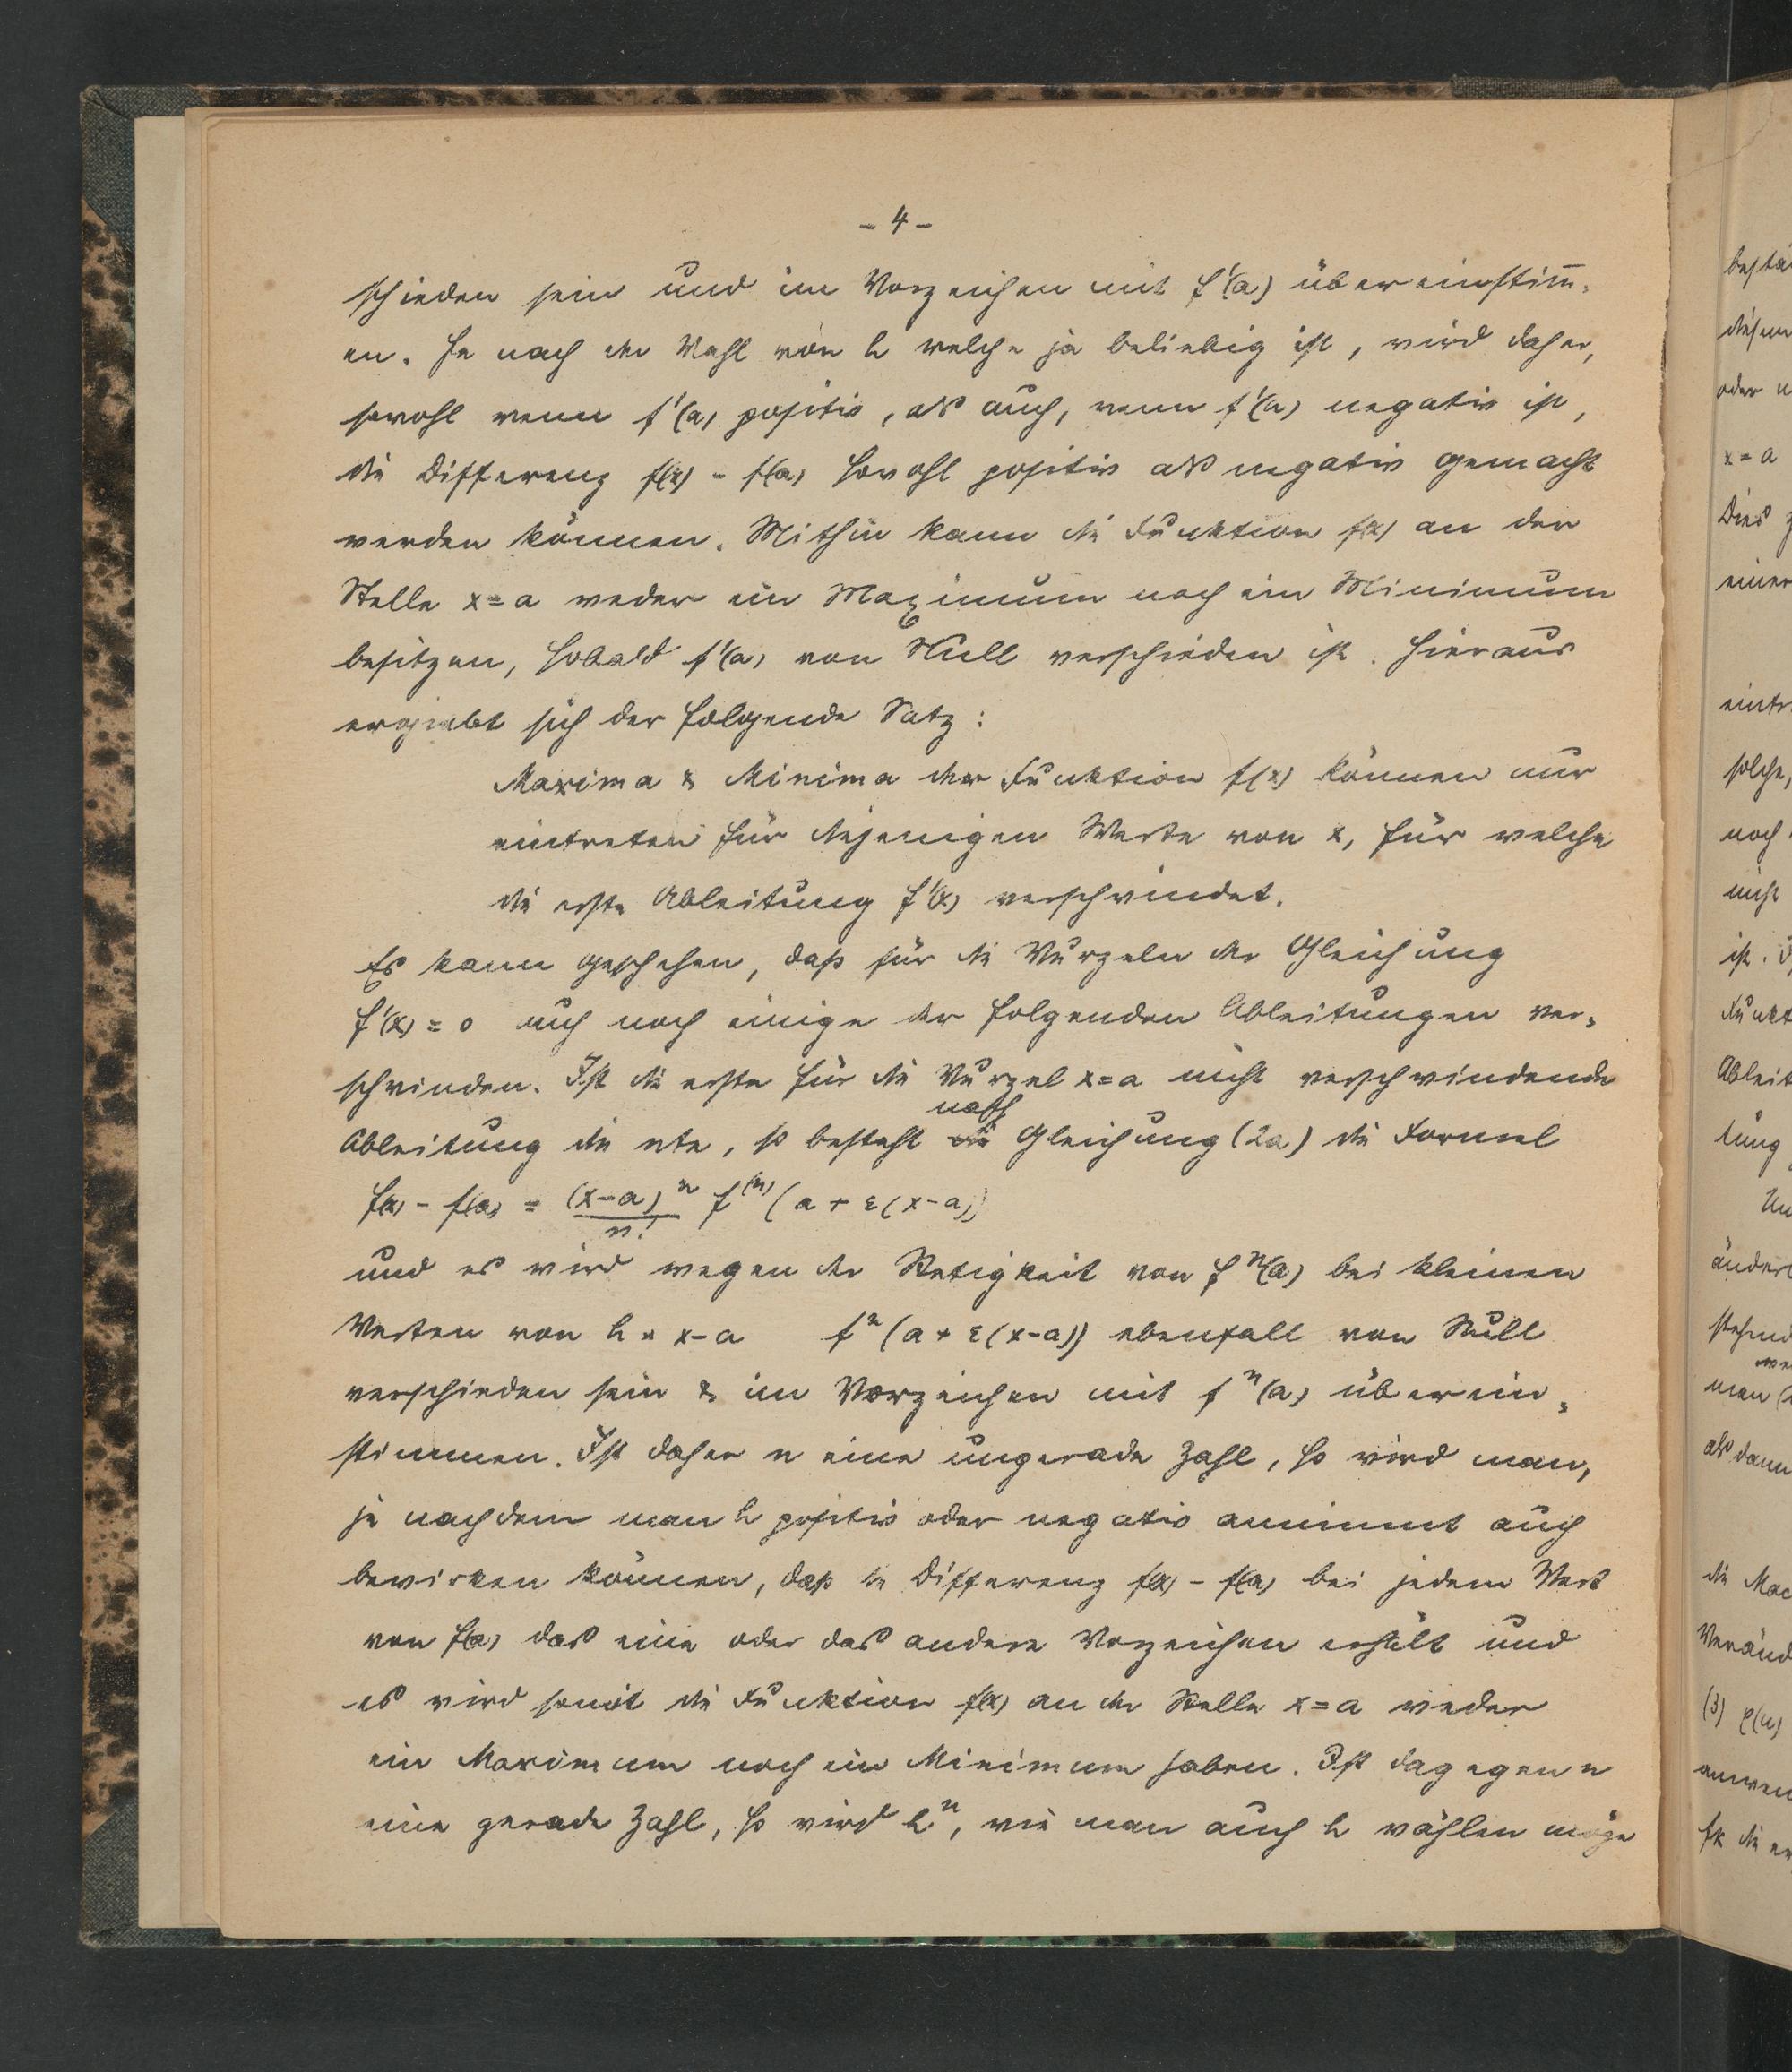 - 4 -
schieden sein und im Vorzeichen mit f'(a) übereinstim̅-
en. Je nach der Wahl von h welche ja beliebig ist, wird daher,
sowohl wenn f'(a) positiv, als auch, wenn f'(a) negativ ist,
die Differenz f(x) - f(a) sowohl positiv als negativ gemacht
werden können. Mithin kann die Funktion f(x) an der
Stelle x = a weder ein Maximum noch ein Minimum
besitzen, sobald f'(a) von Null verschieden ist. Hieraus
ergiebt sich der folgende Satz:
Maxima & Minima der Funktion f(x) können nur
eintreten für diejenigen Werte von x, für welche
die erste Ableitung f'(x) verschwindet.
Es kann geschehen, daß für die Wurzeln der Gleichung
f'(x) = 0 auch noch einige der folgenden Ableitungen ver-
schwinden. Ist die erste für die Wurzel x = a nicht verschwindende
nach
Ableitung die nte, so besteht die Gleichung (2a) die Formel
f(x) - f(a) = (x-a)^n / n! f^(n) (a + ε(x-a))
und es wird wegen der Stetigkeit von f^n(a) bei kleinen
Werten von h = x-a f^n (a + ε(x-a)) ebenfall von Null
verschieden sein & im Vorzeichen mit f^n(a) überein-
stimmen. Ist daher n eine ungerade Zahl, so wird man,
je nachdem man h positiv oder negativ annimmt auch
bewirken können, daß die Differenz f(x) - f(a) bei jedem Wert
von f(a) das eine oder das andere Vozeichen erhält und
es wird somit die Funktion f(x) an der Stelle x = a weder
ein Maximum noch ein Minimum haben. Ist dagegen n
eine gerade Zahl, so wird h^n, wie man auch h wählen möge
oder
x = a
Dies
einer
solche,
noch
nicht
ist.
Ableit
man
als dann
(3) φ(u)